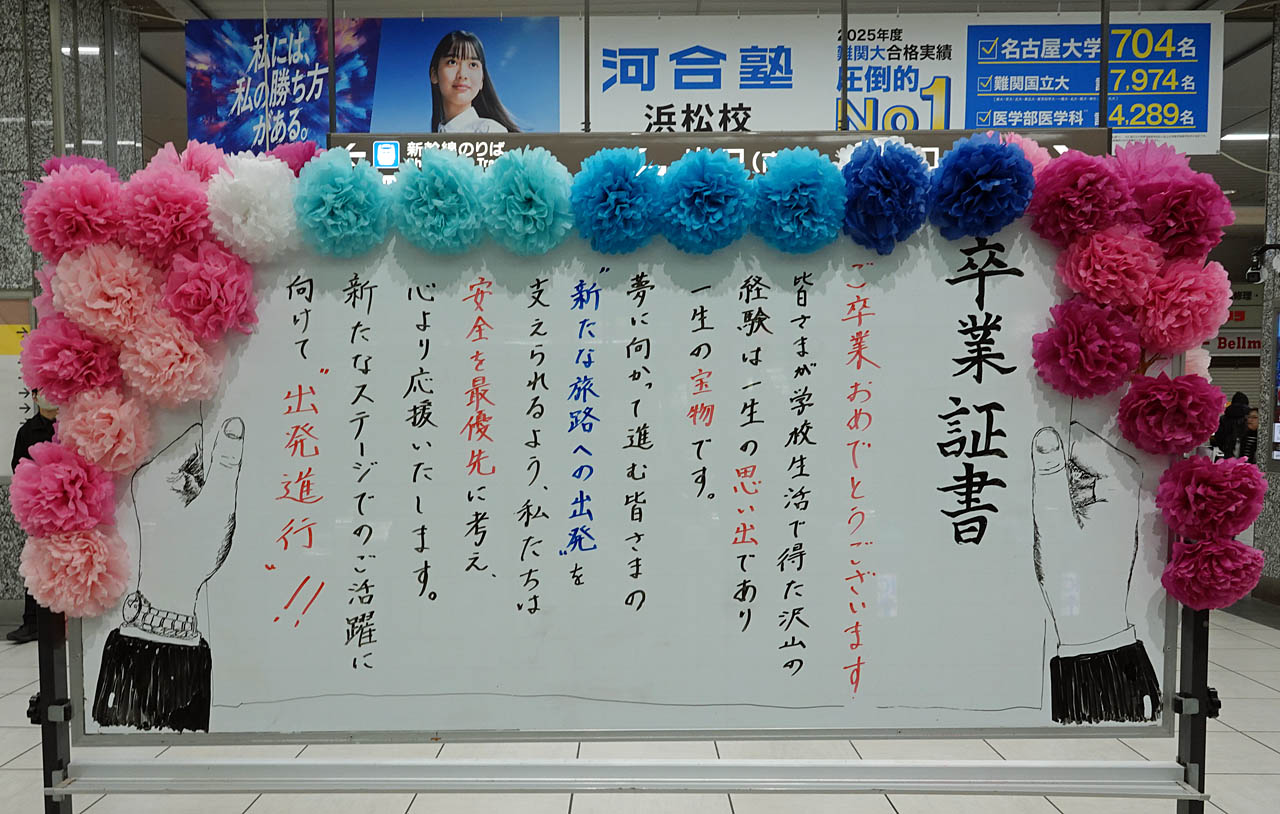 私には、
私の勝ち方
がある。
河合塾
浜松校
2025年度
難関大合格実績
圧倒的
No1
名古屋大学
704名
難関国立大
7,974名
医学部医学科
4,289名
新幹線のりば
Bellm
卒業証書
ご卒業おめでとうございます
皆さまが学校生活で得た沢山の
経験は一生の思い出であり
一生の宝物です。
夢に向かって進む皆さまの
"新たな旅路への出発"を
支えられるよう、私たちは
安全を最優先に考え、
心より応援いたします。
新たなステージでのご活躍に
向けて"出発進行"!!